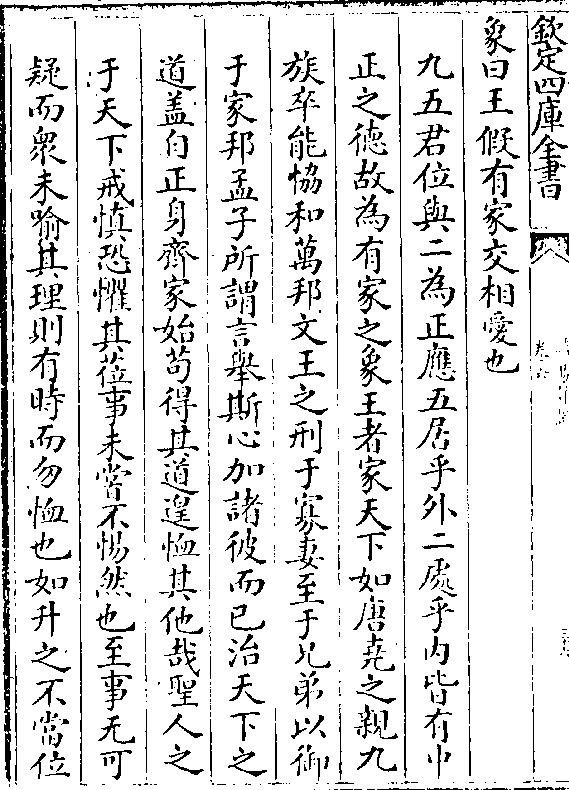 欽定四庫全書
象曰王假有家交相愛也
九五君位與二為正應五居乎外二處乎内皆有中
正之德故為有家之象王者家天下如唐堯之親九
族卒能協和萬邦文王之刑于寡妻至于兄弟以御
于家邦孟子所謂言舉斯心加諸彼而已治天下之
道盖自正身齊家始苟得其道遑恤其他哉聖人之
于天下戒慎恐懼其莅事未嘗不惕然也至事无可
疑而衆未喻其理則有時而勿恤也如升之不當位